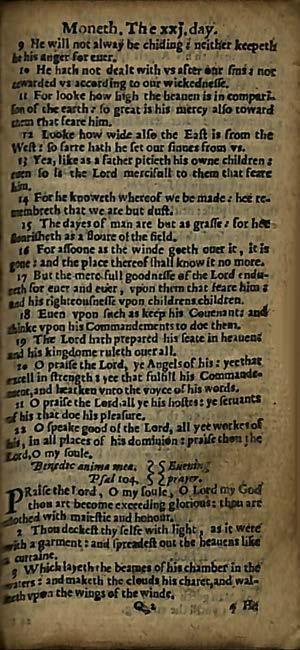 Moneth. The xxj. day.
9 He will not alway be chiding : neither keepeth
he his anger for euer.
10 He hath not dealt with vs after our sins : nor
rewarded vs according to our wickednesse.
11 For looke how high the heauen is in compari-
son of the earth : so great is his mercy also toward
them that feare him.
12 Looke how wide also the East is from the
West : so farre hath he set our sinnes from vs.
13 Yea, like as a father pitieth his owne children :
euen so is the Lord mercifull to them that feare
him.
14 For he knoweth whereof we be made : hee re-
membreth that we are but dust.
15 The dayes of man are but as grasse : for hee
flourisheth as a floure of the field.
16 For assoone as the winde goeth ouer it, it is
gone : and the place thereof shall know it no more.
17 But the mercifull goodnesse of the Lord endu-
reth for euer and euer, vpon them that feare him :
and his righteousnesse vpon childrens children.
18 Euen vpon such as keep his Couenant : and
thinke vpon his Commandements to doe them.
19 The Lord hath prepared his seate in heauen :
and his kingdome ruleth ouer all.
20 O praise the Lord, ye Angels of his : yee that
excell in strength : yee that fulfill his Commande-
ment, and hearken vnto the voyce of his words.
21 O praise the Lord, all ye his hostes : ye seruants
of his that doe his pleasure.
22 O speake good of the Lord, all yee workes of
his, in all places of his dominion : praise thou the
Lord, O my soule.
Benedic anima mea. Euening
Psal 104. prayer.
PRaise the Lord, O my soule, O Lord my God
thou art become exceeding glorious : thou are
clothed with maiestie and honour.
2 Thou deckest thy selfe with light, as it were
with a garment : and spreadest out the heauens like
a curtaine.
3 Which layeth the beames of his chamber in the
waters : and maketh the clouds his charet, and wal-
keth vpon the wings of the winde.
Q 2 4 He